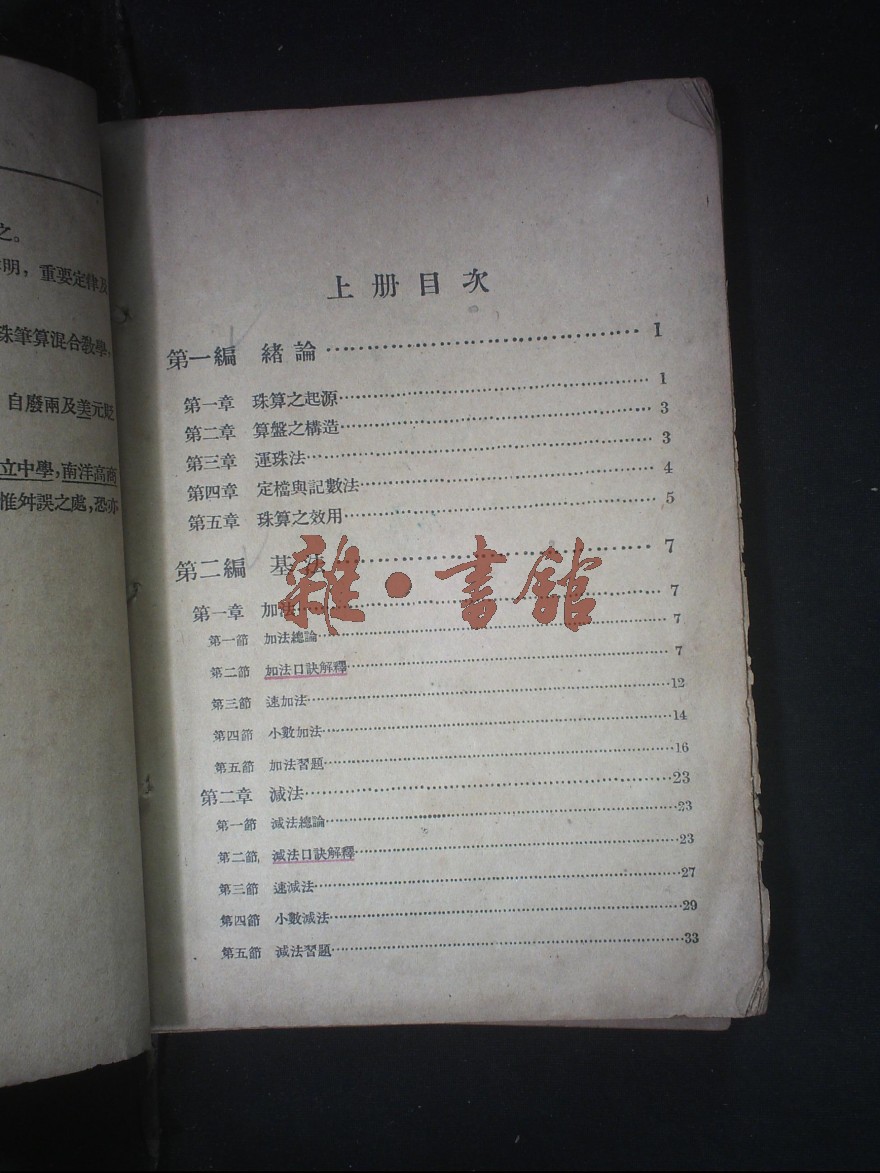 之。
明，重要定律及
珠筆算混合敎學，
自廢兩及美元貶
立中學，南洋高商
惟舛誤之處，恐亦
上册目次
第一編 緒論……1
第一章 珠算之起源……1
第二章 算盤之構造……3
第三章 運珠法……3
第四章 定檔與記數法……4
第五章 珠算之效用……5
第二編 基法……7
雜·書館
第一章 加法……7
第一節 加法總論……7
第二節 如法口訣解釋……7
第三節 速加法……12
第四節 小數加法……14
第五節 加法習題……16
第二章 減法……23
第一節 減法總論……23
第二節 減法口訣解釋……23
第三節 速減法……27
第四節 小數減法……29
第五節 減法習題……33